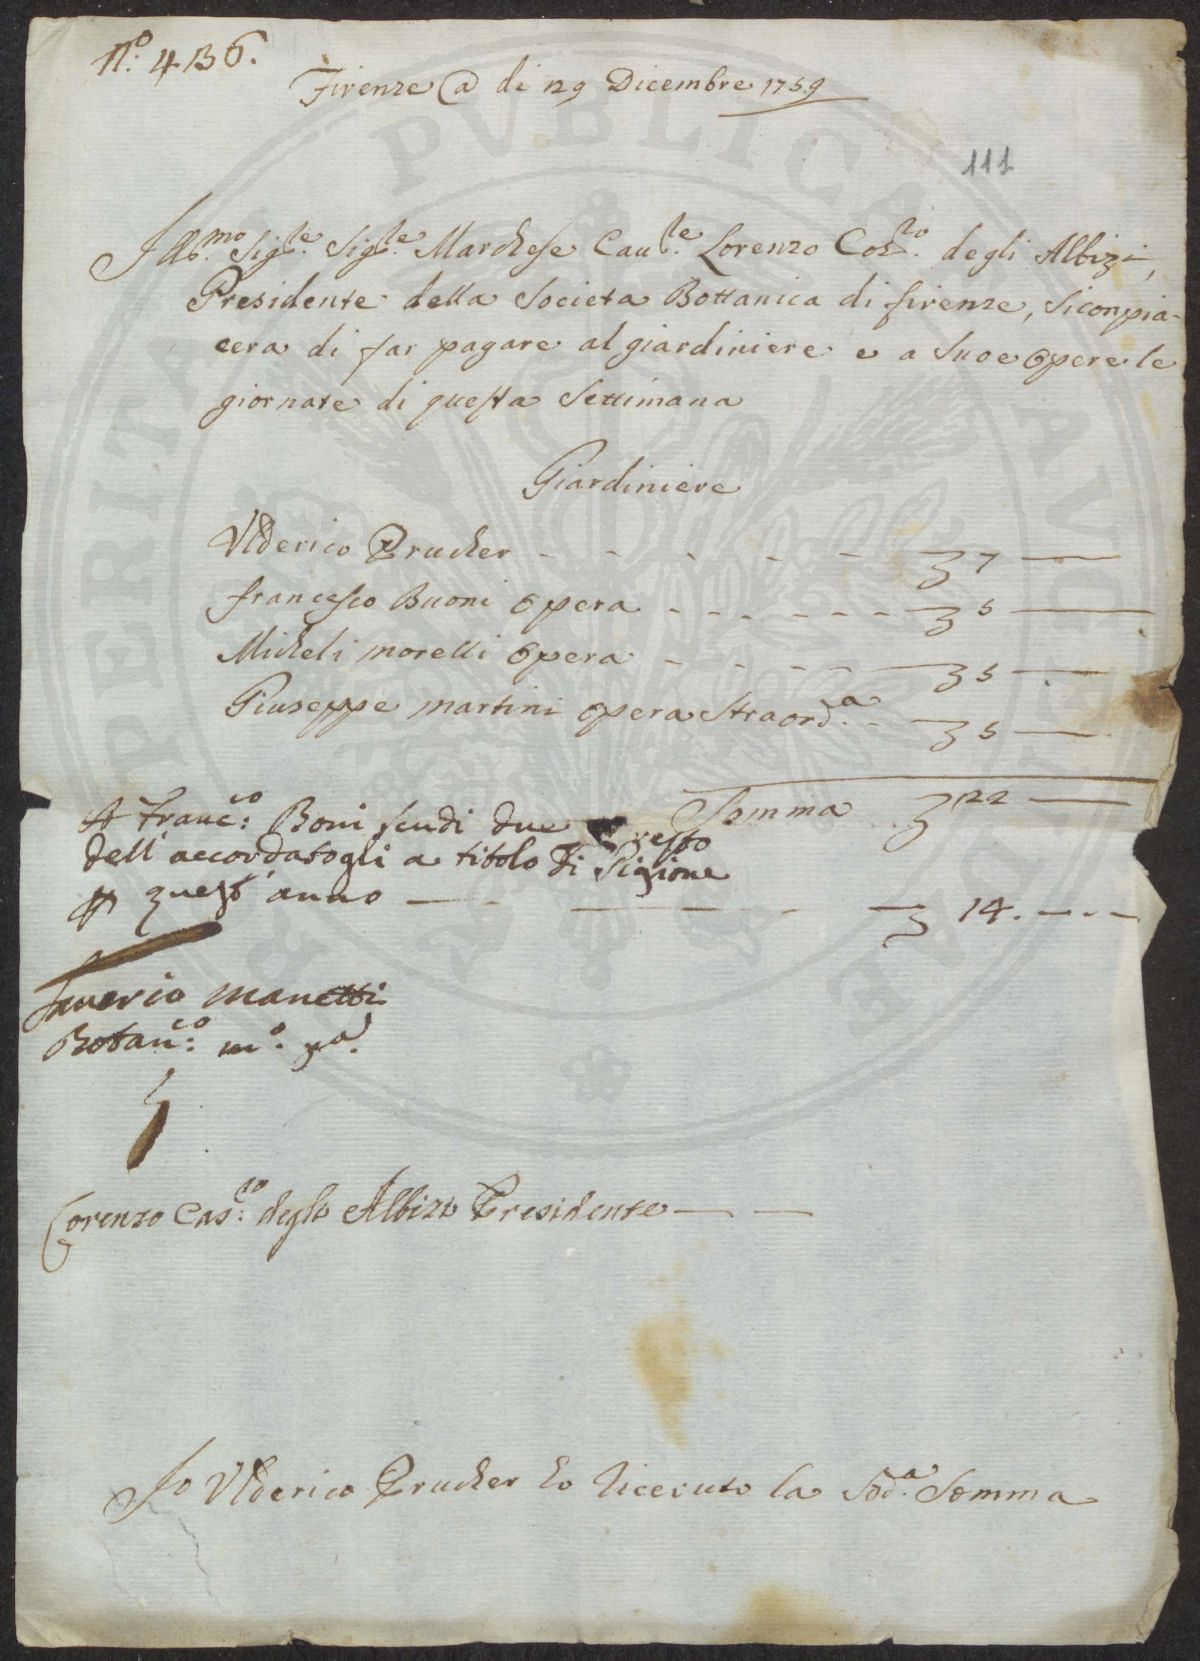 N.º 436.
Firenze @ di 29 Dicembre 1759
111
Ill.mo Sig.le Sig.le Marchese Cau.le Lorenzo Cos.to degli Albizi,
Presidente della Societa Bottanica di firenze, Si conpia-
cera di far pagare al giardiniere e a Sue Opere le
giornate di questa Settimana
Giardiniere
Vlderico Prucker - - - - - 7 —
francesco Buoni Opera - - - - - 5 —
Micheli morelli Opera - - - - 5 —
Giuseppe martini Opera Straord.a - 5 —
Somma 22 —
A Franc.co Boni scudi due resto
dell'accordatogli a titolo di Pigione
quest'anno — - — — - 14. - - -
Saverio Manetti
Botan.co m.o pa.
Lorenzo Cos.to degli Albizi Presidente — —
Io Vlderico Prucker ho Riceuto la Sod.a Somma
PVBLICAE
PERITAT